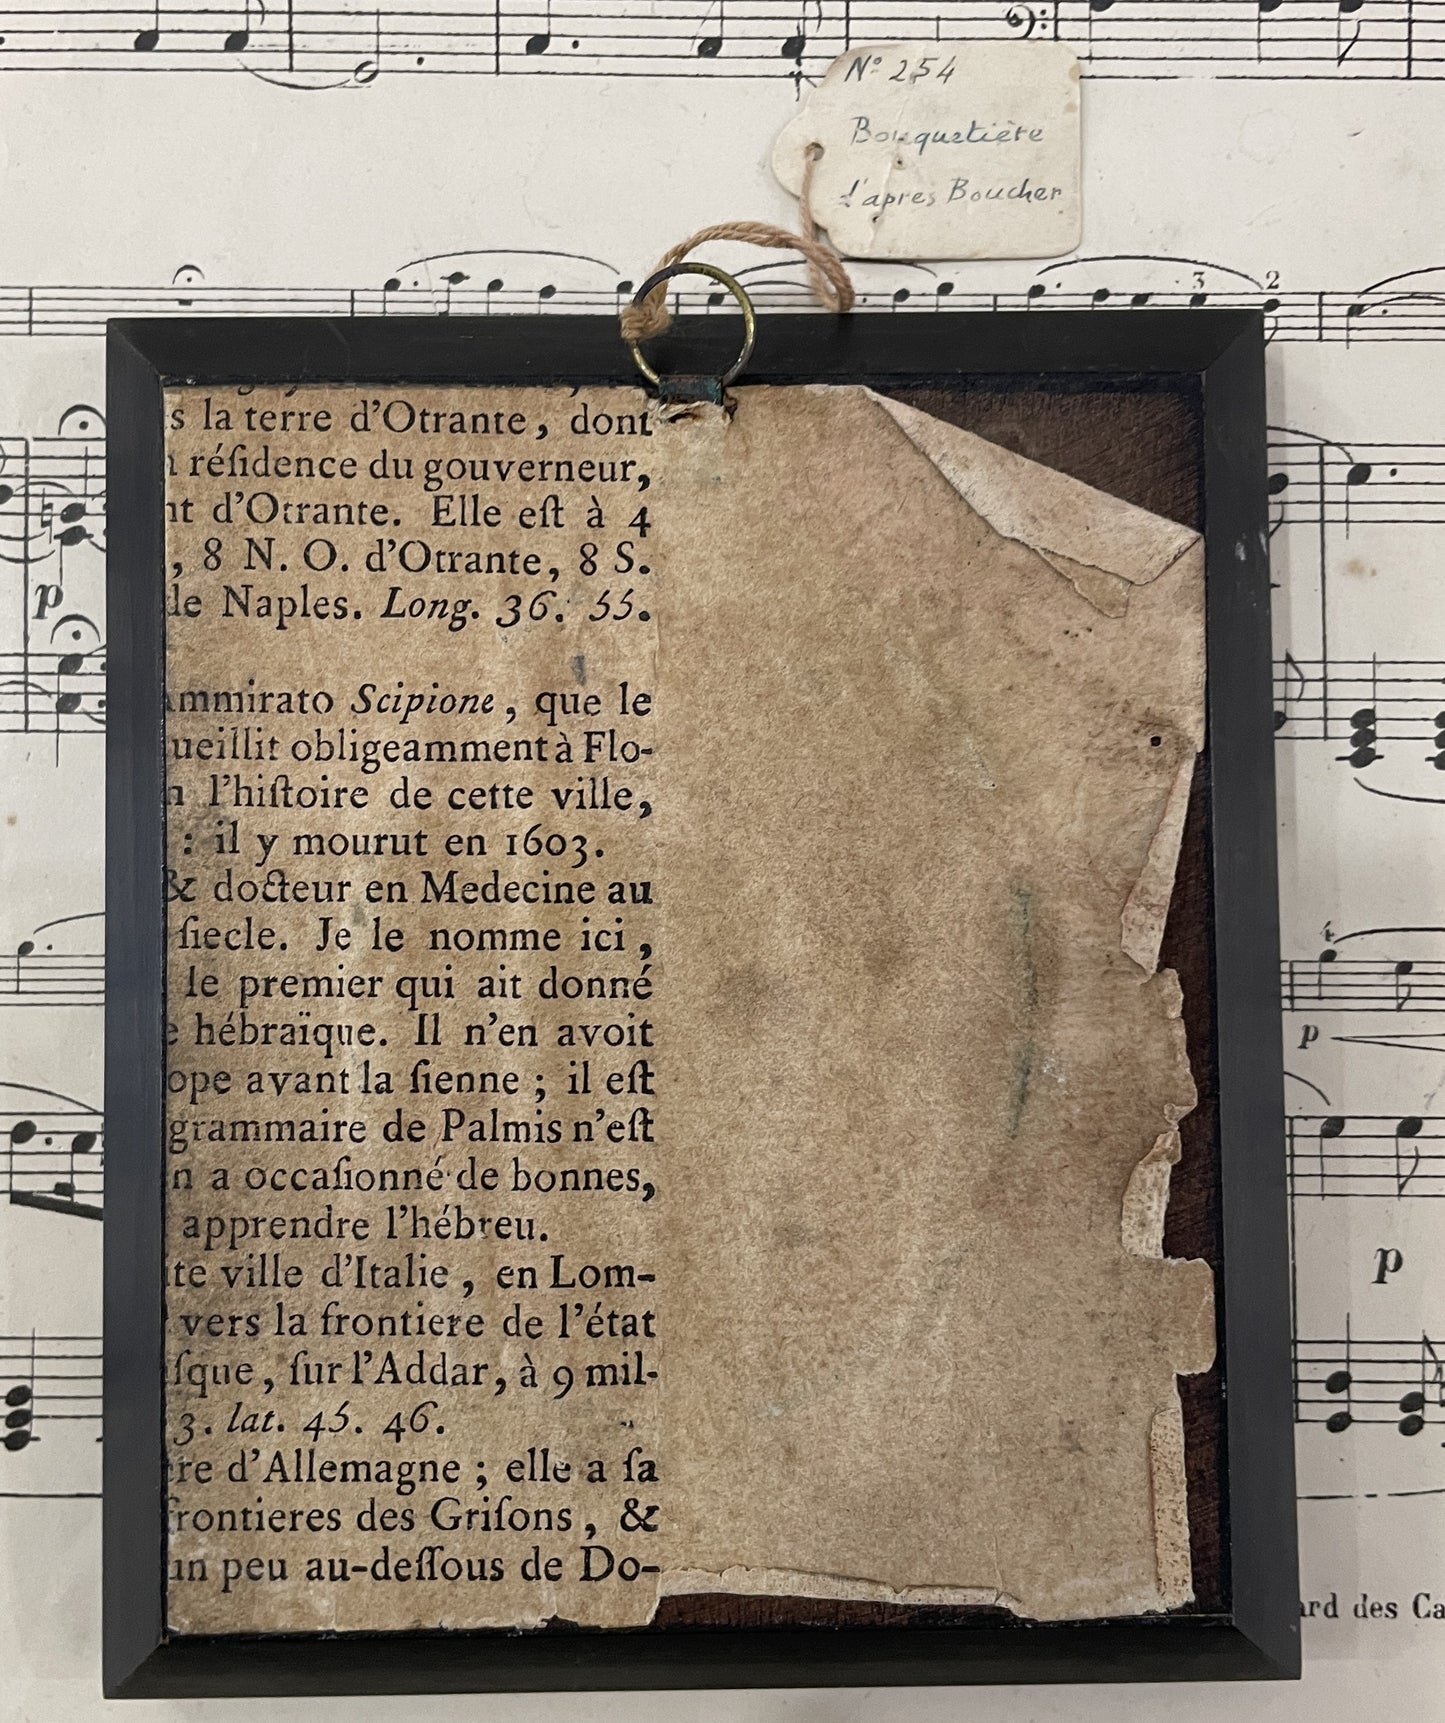 Nº 254
Bouquetière
d'apres Boucher
3
2
la terre d'Otrante, dont
réſidence du gouverneur,
d'Otrante. Elle eſt à 4
, 8 N. O. d'Otrante, 8 S.
de Naples. Long. 36. 55.
mmirato Scipione, que le
ueillit obligeamment à Flo-
l'hiſtoire de cette ville,
: il y mourut en 1603.
& docteur en Medecine au
ſiecle. Je le nomme ici,
le premier qui ait donné
hébraïque. Il n'en avoit
ope avant la ſienne ; il eſt
grammaire de Palmis n'eſt
n a occaſionné de bonnes,
apprendre l'hébreu.
te ville d'Italie, en Lom-
vers la frontiere de l'état
ſque, ſur l'Addar, à 9 mil-
3. lat. 45. 46.
re d'Allemagne ; elle a ſa
frontieres des Griſons, &
un peu au-deſſous de Do-
p
4
p
p
ard des Ca